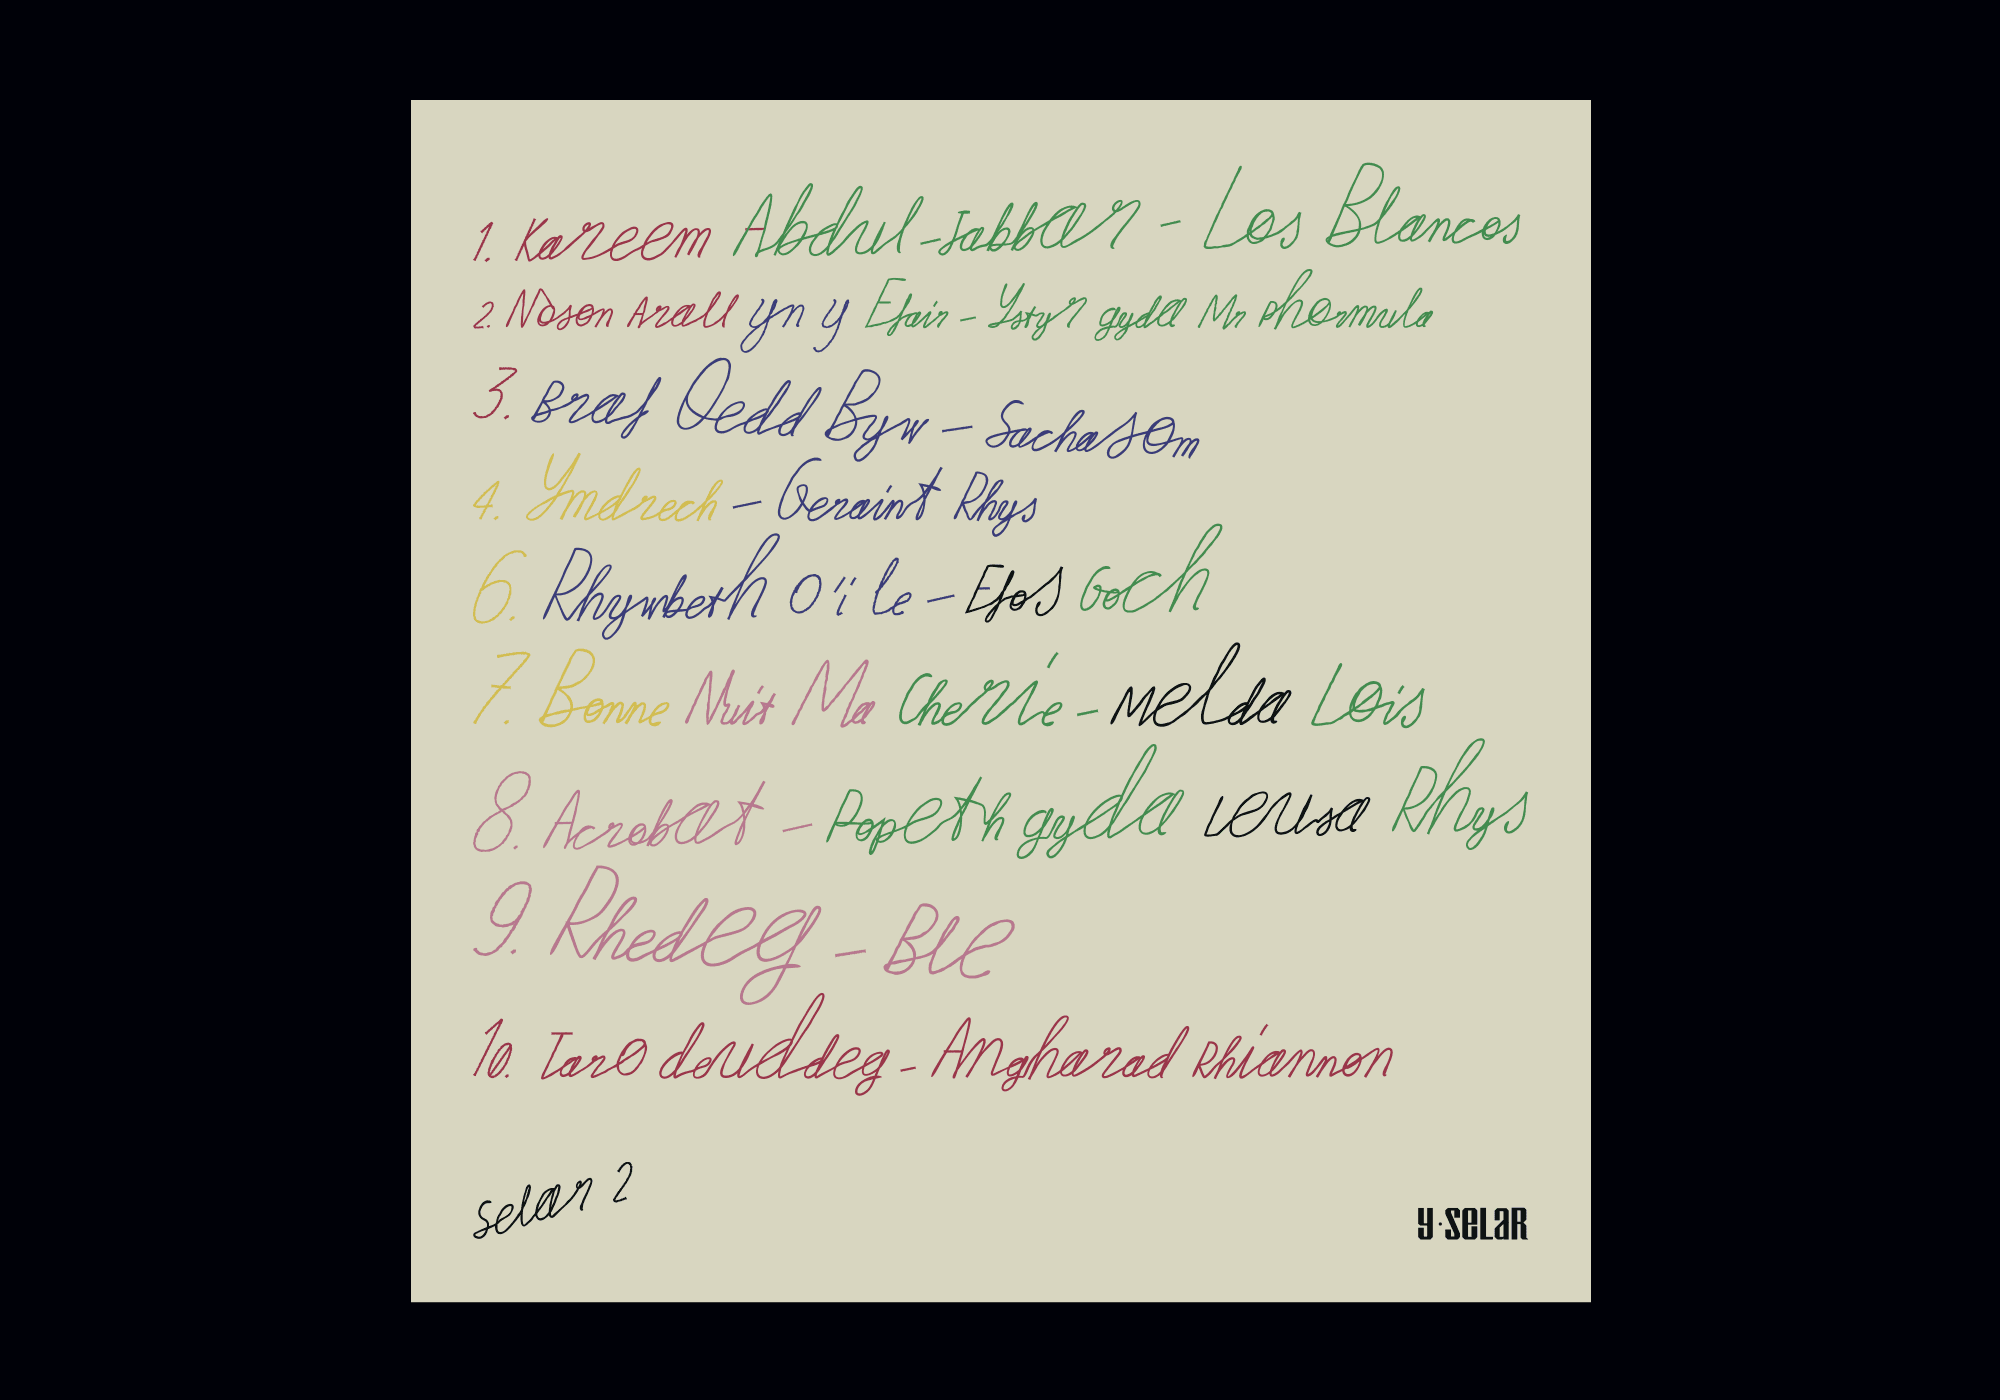 1. Kareem Abdul-Jabbar - Los Blancos
2. Noson Arall yn y Efair - Ystyr gyda Mr Phormula
3. Braf Oedd Byw - Sachasom
4. Ymdrech - Geraint Rhys
6. Rhywbeth O'i le - Efos Goch
7. Bonne Nuit Ma Cherie - Melda Lois
8. Acrobat - Popeth gyda Leusa Rhys
9. Rhedeg - Ble
10. Taro deuddeg - Angharad Rhiannon
selar 2
Y·SELAR